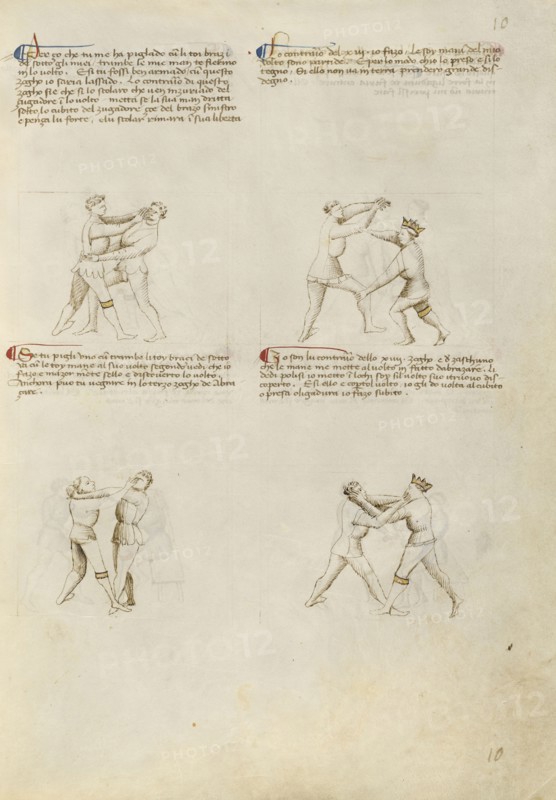 Per ço che tu me ha pigliado cū li toi brazi
de sotto gli miei trambe le mie man te fierino
in lo volto. E si tu fossi ben armado cū questo
zogho io saria lassado. Lo contrario di questo
zogho si e che si lo scolaro che ven inzuriado del
zugadore ī lo volto metta se la sua man dritta
sotto lo cubito del zugadore çoe del brazo sinistro
e penza lu forte. e lu scolar rimara ī sua liberta
Lo contrario del xiij. io fazo. Le soy mani del mio
volto sono partide. E per lo modo chio lo preso e si lo
tegno. Si ello non va in terra prendero grande dis
degno.
Se tu pigli uno cū trambi li toy brazi de sotto
va cū le toy mane al suo volto segondo vedi che io
fazo e mazor mente sello e discoverto lo volto.
Anchora poi tu vegnire in lo terzo zogho de Abra
zare.
Io son lu contrario dello xiiij. zogho e d zaschuno
che le mane me mette al volto in fatto dabrazare. Li
dedi polisi io metto ī lochi soy sil volto suo trovo dis
coperto. E si ello e coptol volto io gli do volta al cubito
o presa o ligadura io fazo subito.
10
10
PHOTO12